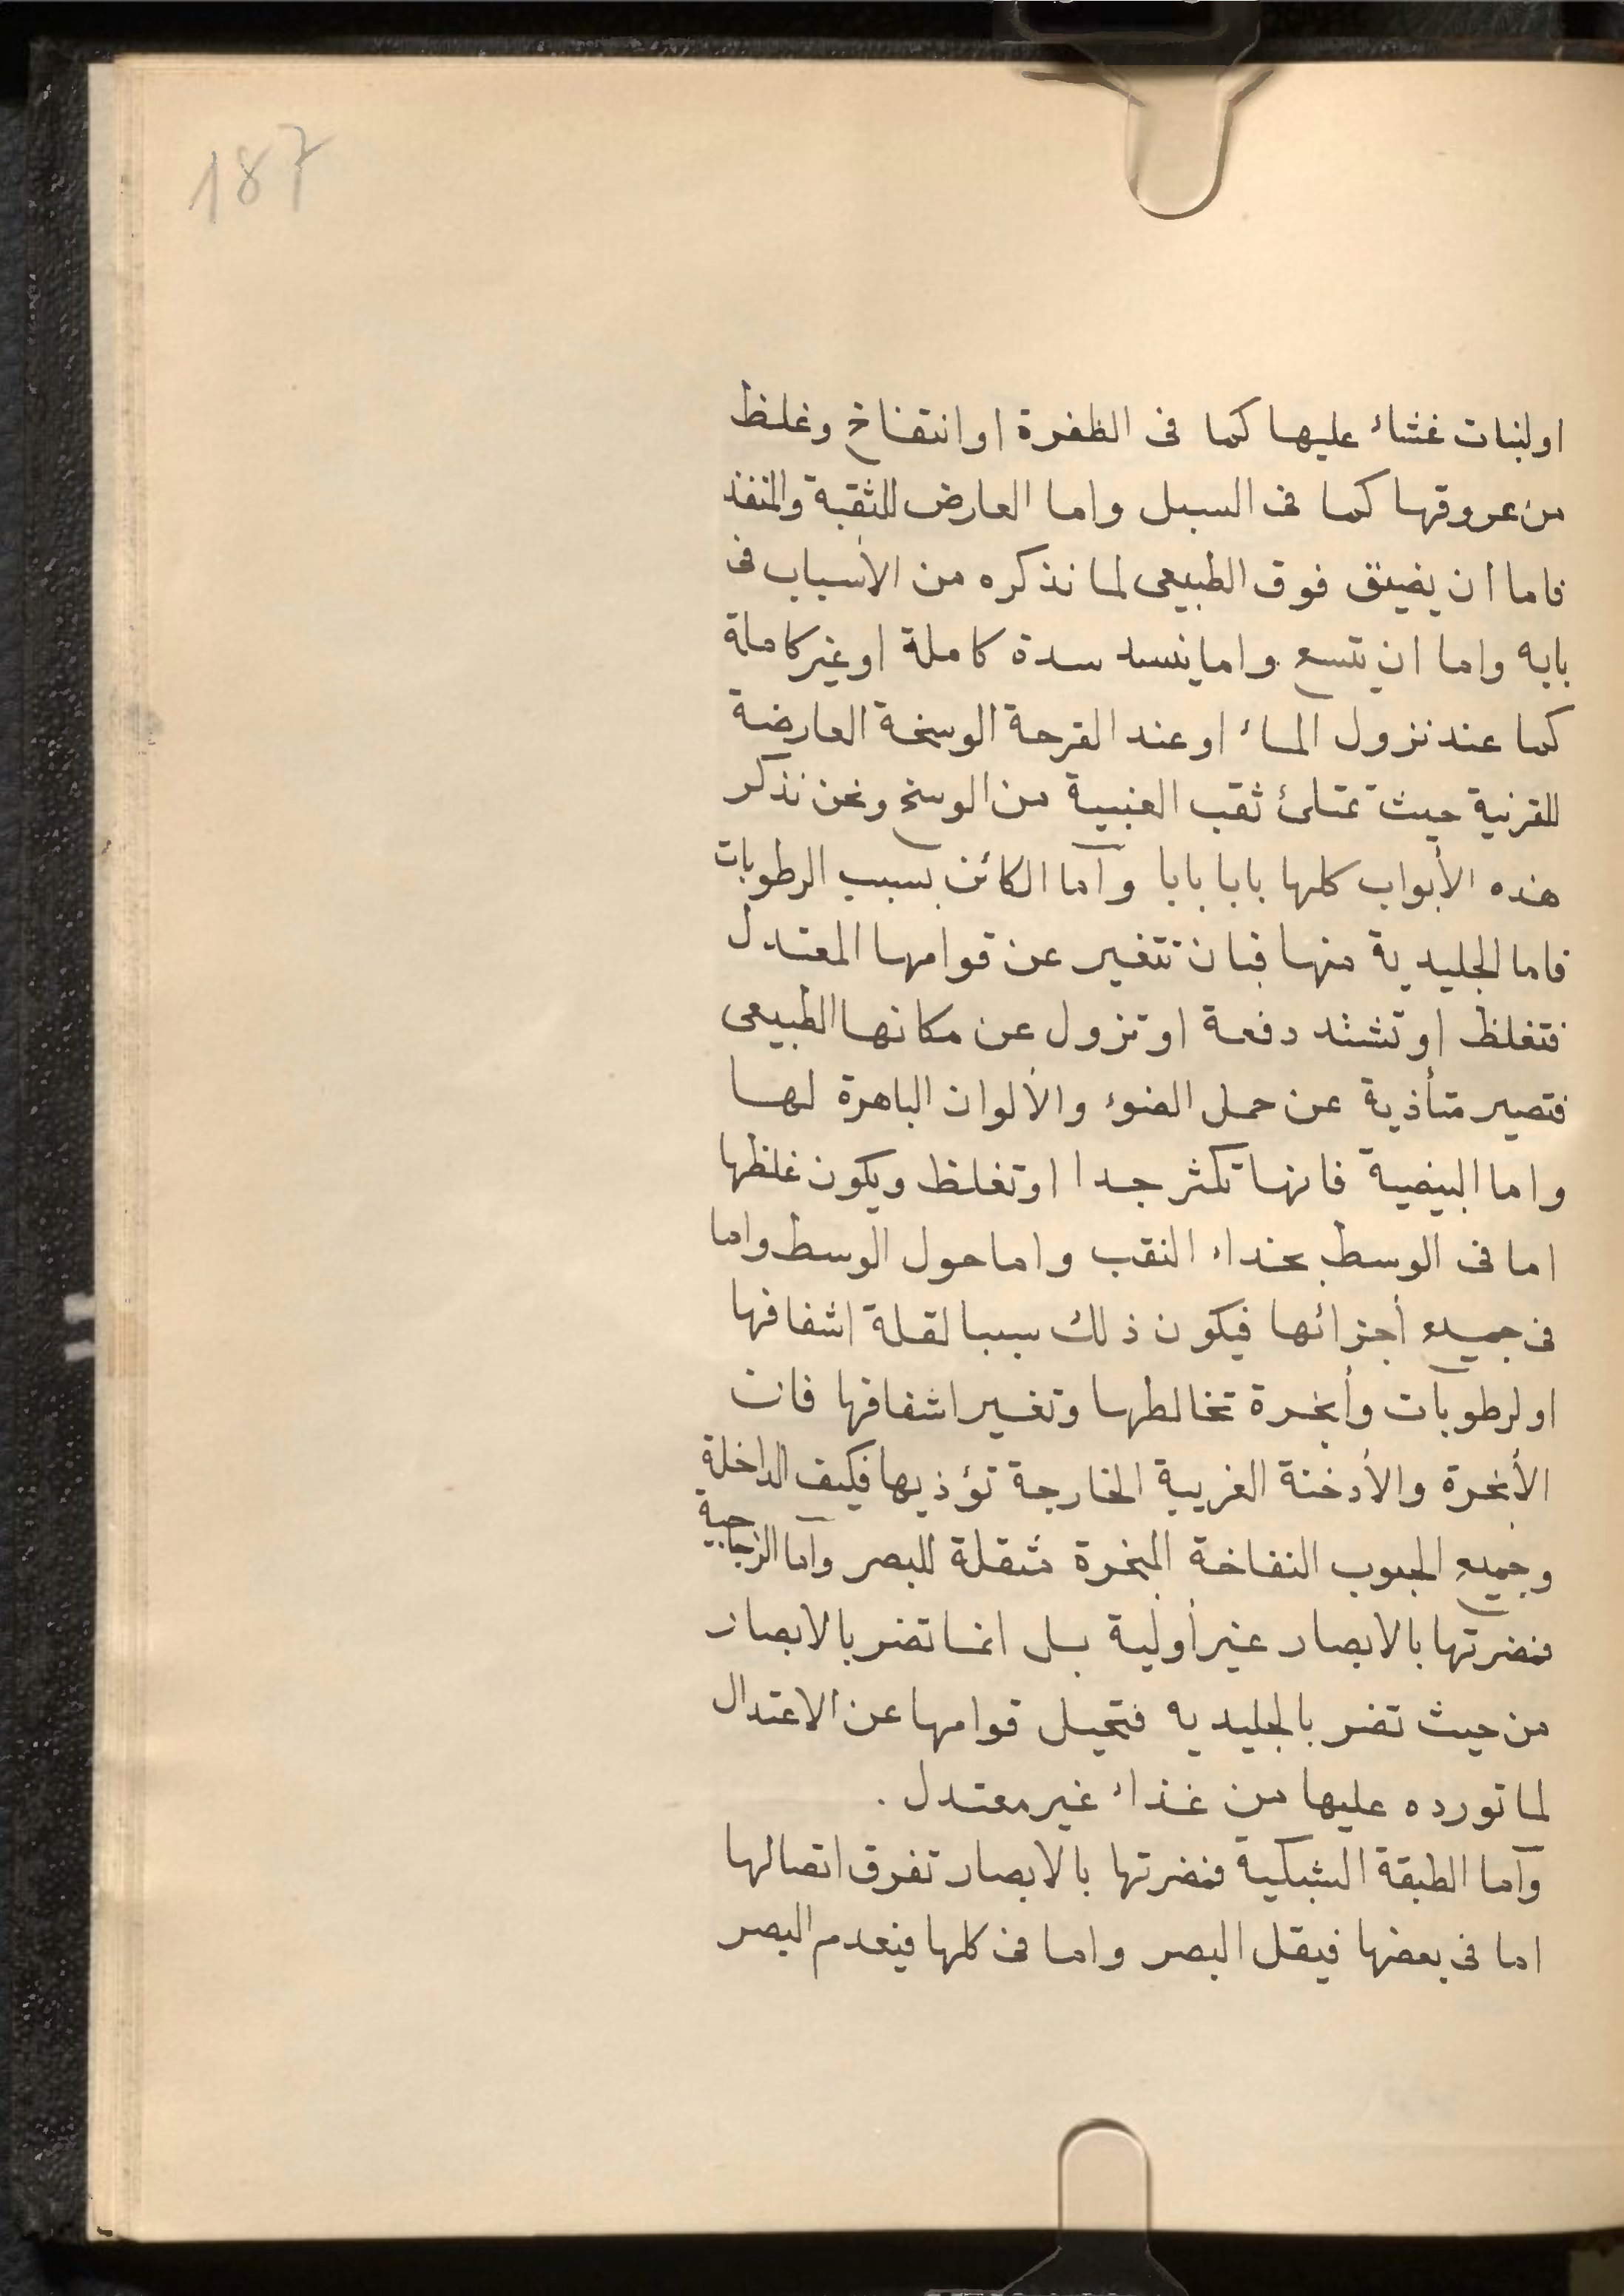 187
او لنبات غشاء عليها كما فى الظفرة او انتفاخ وغلظ
من عروقها كما فى السبل واما العارض للثقبة والمنفذ
فاما أن يضيق فوق الطبيعى لما نذكره من الأسباب فى
بابه واما ان يتسع واما ينسد سدة كاملة او غير كاملة
كما عند نزول الماء او عند القرحة الوسخة العارضة
للقرنية حيث تمتلئ ثقب العنبية من الوسخ ونحن نذكر
هذه الأبواب كلها بابا بابا وآما الكائن بسبب الرطوبات
فاما الجليدية منها فبان تتغير عن قوامها المعتدل
فتغلظ او تشتد دفعة او تزول عن مكانها الطبيعى
فتصير متأذية عن حمل الضوء والألوان الباهرة لها
واما البيضية فانها تكثر جدا او تغلظ ويكون غلظها
اما فى الوسط بحذاء النقب واما حول الوسط واما
فى جميع أجزائها فيكون ذلك سببا لقلة اشفافها
او لرطوبات وأبخرة تخالطها وتغير اشفافها فان
الأبخرة والأدخنة الغريبة الخارجة تؤذيها فكيف الداخلة
وجميع الحبوب النفاخة المبخرة مثقلة للبصر وآما الزجاجية
فمضرتها بالابصار غير أولية بل انما تضر بالابصار
من حيث تضر بالجليديه فتحيل قوامها عن الاعتدال
لما تورده عليها من غذاء غير معتدل .
وآما الطبقة الشبكية فمضرتها بالابصار تفرق اتصالها
اما فى بعضها فيقل البصر واما فى كلها فينعدم البصر